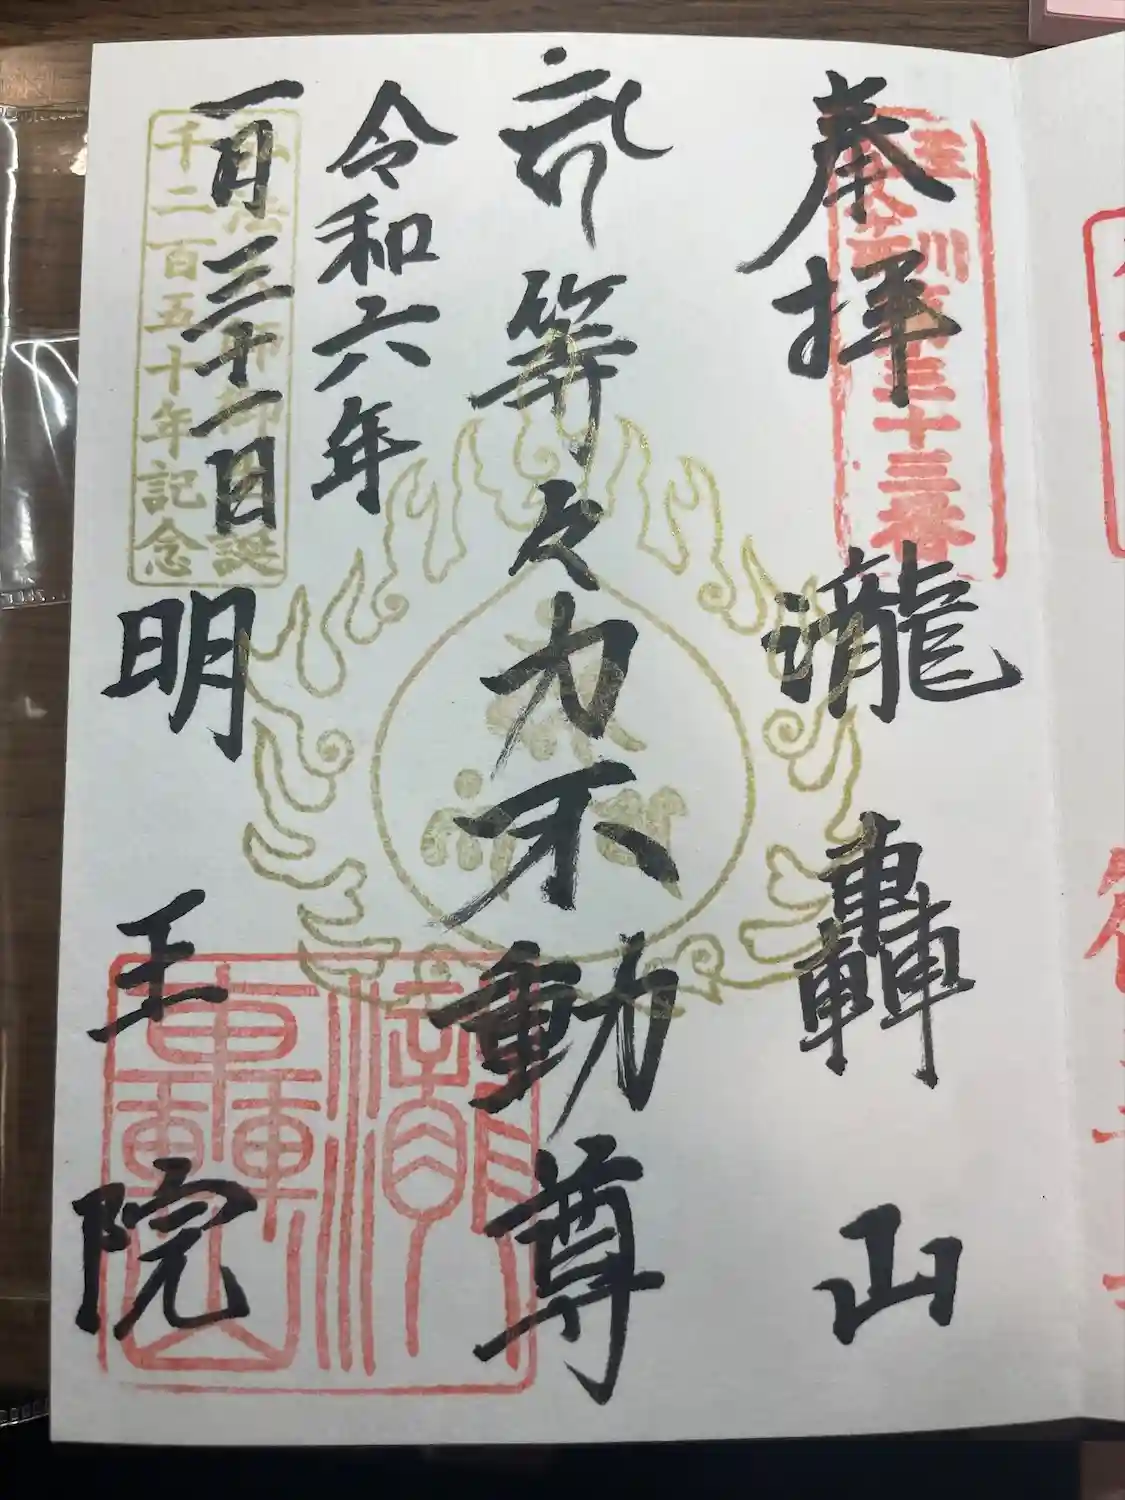 奉拝
瀧轟山
等々力不動尊
令和六年
一月三十一日
明王院
三十三番
誕
千二百五十年記念